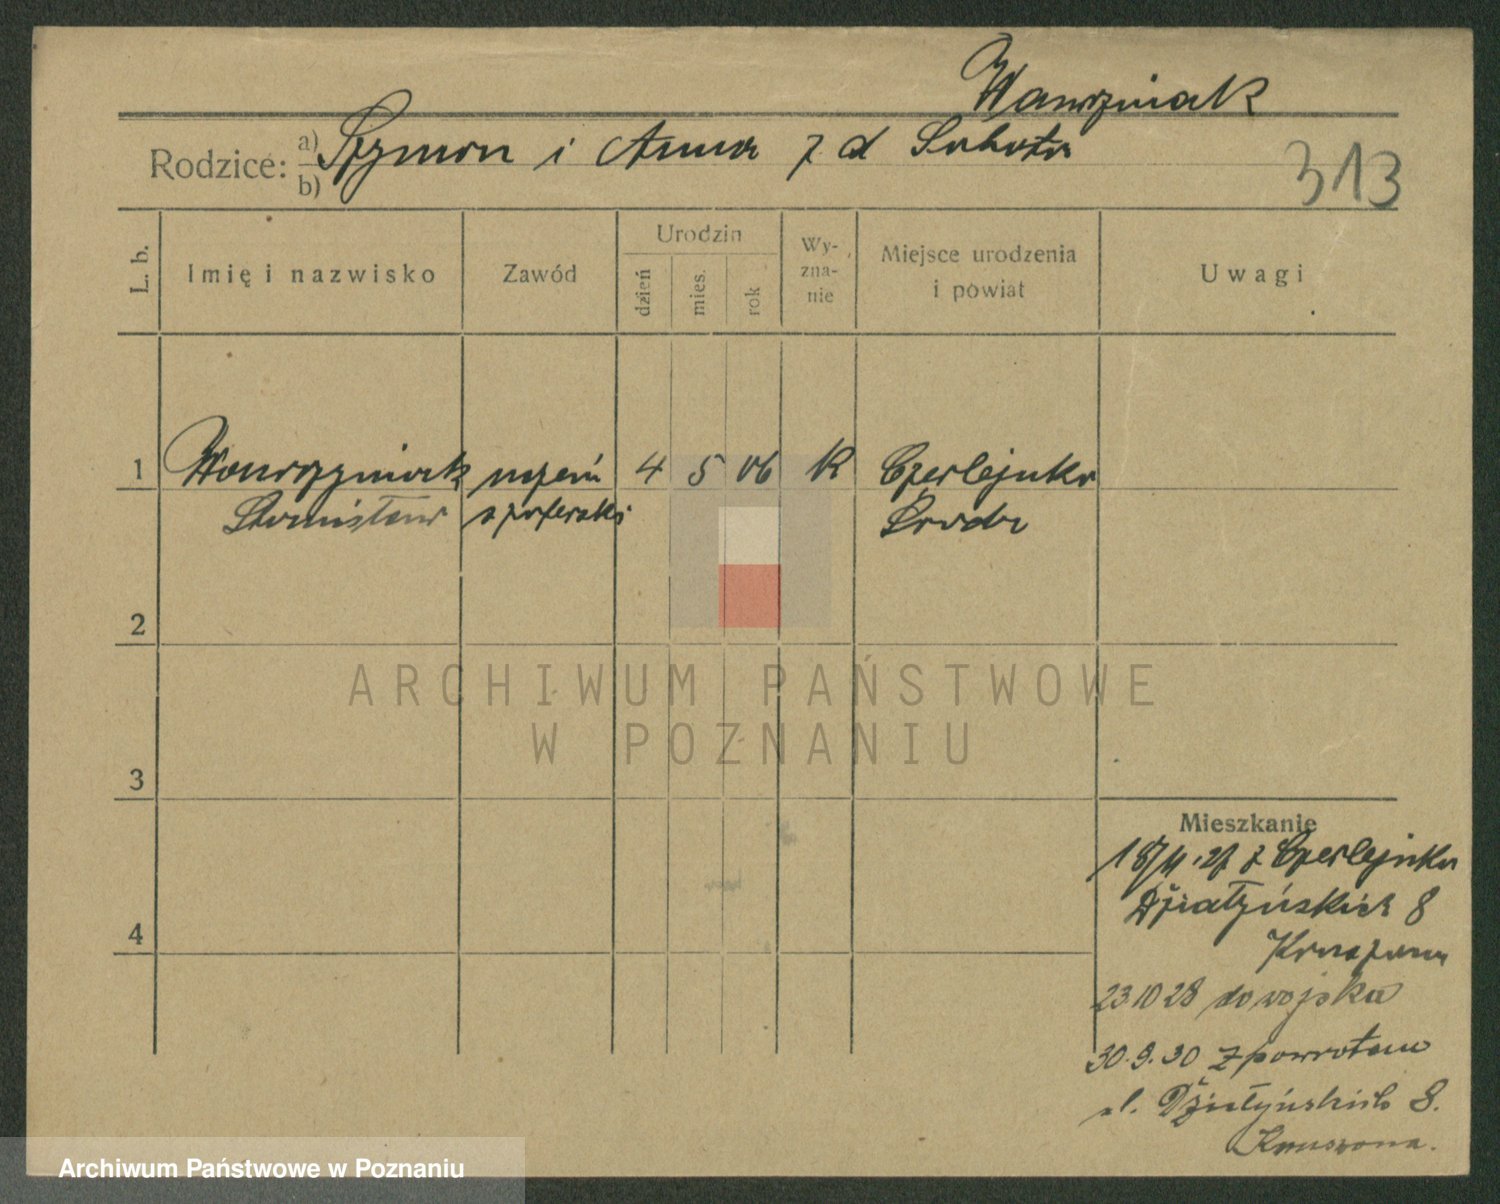 Wawrzyniak
Rodzice: a) Szymon i Anna z d Sobota
b)
313
L. b.
Imię i nazwisko
Zawód
Urodzin
dzień
mies.
rok
Wy-
zna-
nie
Miejsce urodzenia
i powiat
Uwagi
1 Wawrzyniak uczeń 4 5 06 K Czerlejnko
Stanisław szoferski Środa
2
3
4
ARCHIWUM PAŃSTWOWE
W POZNANIU
Mieszkanie
z Czerlejnka
Działyńskich 8
23 10 28 do wojska
30.9.30 z powrotem
ul. Działyńskich 8.
Archiwum Państwowe w Poznaniu